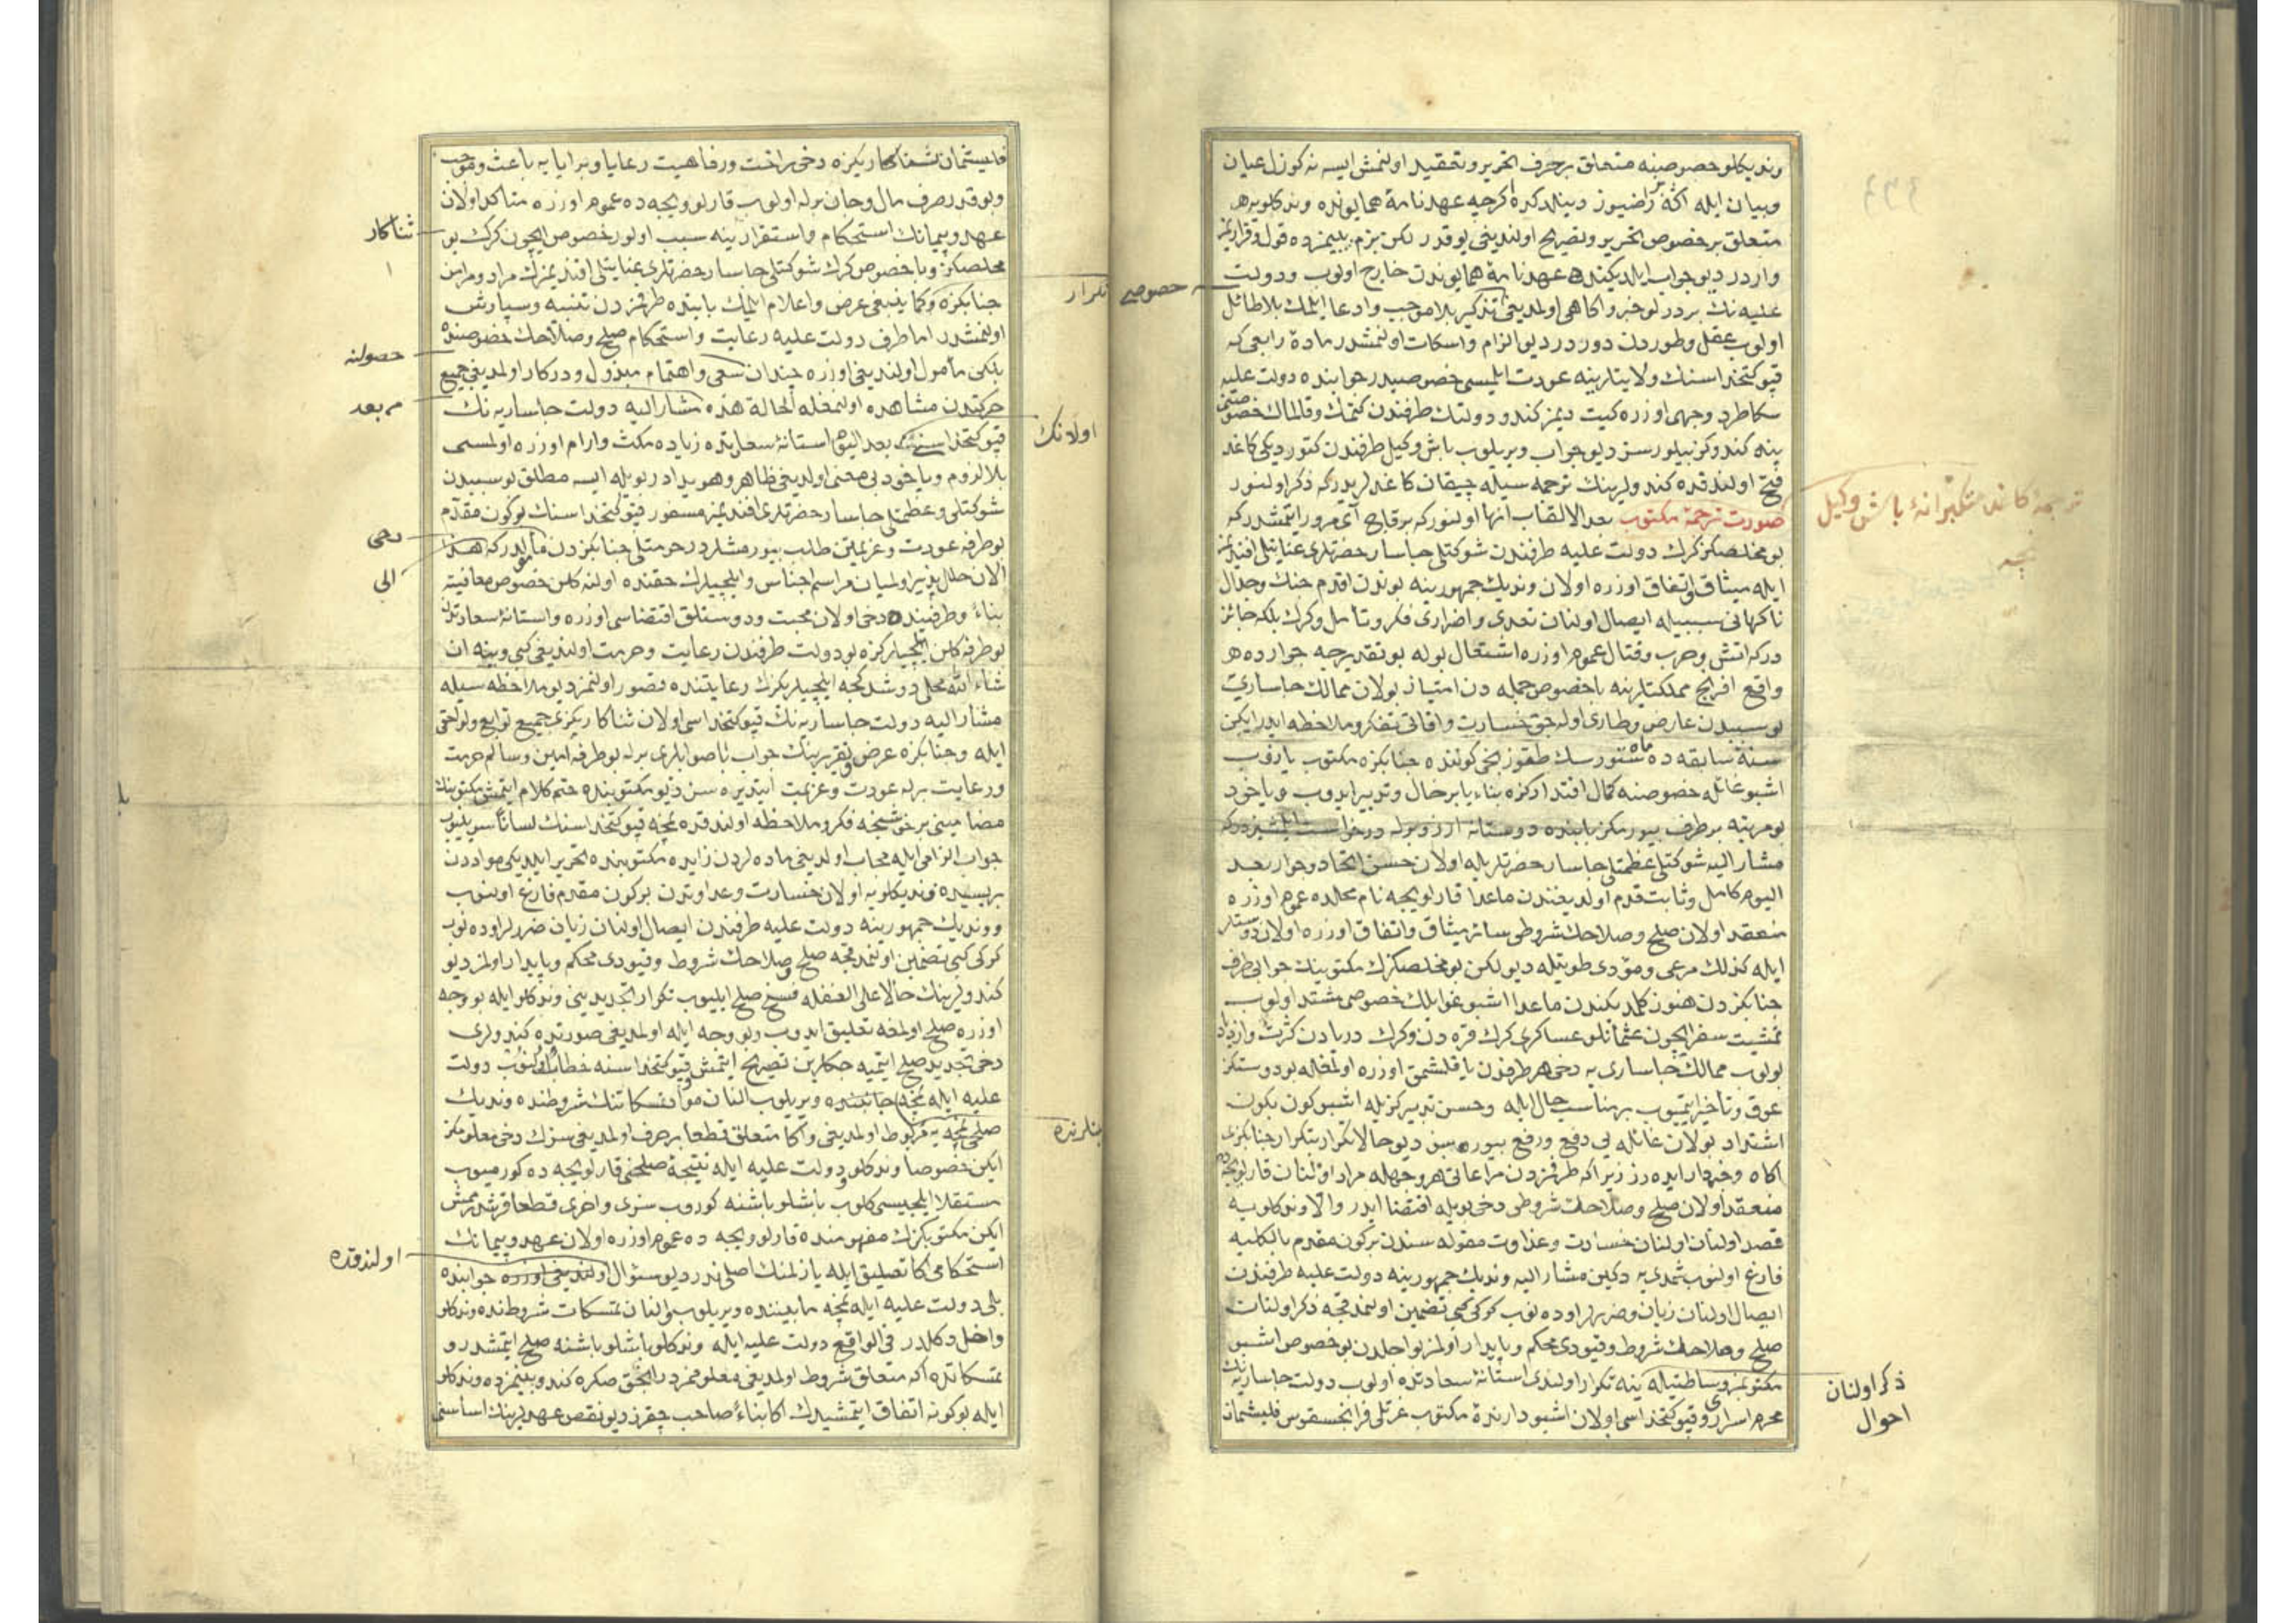 وندیکلو خصوصنه متعلق بر حرف تحریر و تحقید اولنمش ایسه نه کوزل عیان
وبیان ایله اكه بز راضیوز دینلدکده اکرچه عهدنامهٔ همایونده وندکلویه
متعلق بر خصوص تحریر و تصریح اولندیغی یوقدر لکن بزم بینمزده قول وقراریمز
واردر دیو جواب ایلدیکنده عهدنامهٔ همایوندن خارج اولوب ودولت
علیه نك بر درلو خبر واکاهی اولمدیغی تذکیر بلا موجب وادعا ایلمك بلا طائل
اولوب عقل وطوردن دوردر دیو الزام واسکات اولنمشدر مادهٔ رابعی که
قپو کتخداسنك ولایتلرینه عودت ایلمسی خصوصیدر جوابنده دولت علیه
سکا طرد وجهی اوزره کیت دیمز کندو دولتك طرفندن کتمك وقالمق خصوصنی
ینه کندوکز بیلورسز دیو جواب ویریلوب باش وکیل طرفندن کتوردیکی کاغد
فتح اولندقده کندولرینك ترجمه سیله چیقان کاغدلریدر که ذکر اولنور
صورت ترجمهٔ مکتوب بعد الالقاب انها اولنور که بر قاچ آی مرور ایتمشدر که
بو مخلصکز کرك دولت علیه طرفندن شوکتلی جاسار حضرتلری عنایتلی افندیمز
ایله میثاق واتفاق اوزره اولان وندیك جمهورینه بوندن اقدم جنك وجدال
ناکهانی سببیله ایصال اولنان تعدی واضراری فکر وتأمل وکرك بلکه جائز
درکه آتش وحرب وقتال عموم اوزره اشتعال بوله بو تقدیرجه جوارده هر
واقع افرنج مملکتلرینه باخصوص جمله دن امتیاز بولان ممالك جاساری
بو سببدن عارض وطاری اوله جق خسارت وآفاتی تفکر وملاحظه ایدر ایکن
سنهٔ سابقه ده ماه ... طقوزنجی کوننده جنابکزه مکتوب یازوب
اشبو غائله خصوصنه کمال اقتدارکزه بناء یا بر خال وتدبیر ایدوب ویاخود
بو مرتبه برطرف بیورمکز بابنده دوستانه آرزو برله درخواست ...
مشار الیه شوکتلی عظمتلی جاسار حضرتلریله اولان حسن اتحاد وجوار بعد
الیوم کامل وثابت قدم اولدیغندن ماعدا قارلویچه نام محلده عموم اوزره
منعقد اولان صلح وصلاحك شروطی سائر میثاق واتفاق اوزره اولان دوستلر
ایله کذلك مرعی ومؤدی طوتیله دیو لکن بو مخلصکزك مکتوبینك جوابی طرف
جنابکزدن هنوز کلمدیکندن ماعدا اشبو غوائلك خصوصی مشتد اولوب
تمشیت سفر ایچون عثمانلو عساکری کرك قره دن وکرك دریادن کثرت وازدیاد
بولوب ممالك جاساری یه دخی هر طرفدن یاقلشمق اوزره اولمغله بو دوستکز
عوق وتأخیر ایتمیوب بر مناسب حال ایله وحسن تدبیرکزیله اشبو کون بکون
اشتداد بولان غائله یی دفع ورفع بیوره سز دیو حالا تکرار بتکرار جنابکزی
آکاه وخبردار ایده رز زیرا که طرفمزدن مراعاتی هر وجهله مراد اولنان قارلویچه ده
منعقد اولان صلح وصلاحك شروطی دخی بویله اقتضا ایدر والا وندکلویه
قصد اولنان خسارت وعداوت مقوله سندن بر کون مقدم بالکلیه
فارغ اولنوب شمدی یه دکین مشار الیه وندیك جمهورینه دولت علیه طرفندن
ایصال اولنان زیان وضررلر اوده نوب کرکی کبی تضمین اولنمدقجه ذکر اولنان
صلح وصلاحك شروط وقیودی محکم وپایدار اولمز بو اجلدن بو خصوص اشبو
مکتوبمز وساطتیله ینه تکرار اولندی آستانهٔ سعادتده اولوب دولت جاساریه نك
محرم اسراری وقپو کتخداسی اولان اشبو دارندهٔ مکتوب عزتلی فرانچسقوس فلیشمان
خصوصی
ترجمهٔ کاغد متکبرانهٔ باش وکیل
نمچه
ذکر اولنان
احوال
فلیشمان ثناکاریکزه دخی راحت ورفاهیت رعایا وبرایایه باعث وموجب
وبو قدر صرف مال وجان برله اولوب قارلویچه ده عموم اوزره متأکد اولان
عهد وپیمانك استحکام واستقرارینه سبب اولور خصوص ایچون کرك بو
مخلصکز وباخصوص کرك شوکتلی جاسار حضرتلری عنایتلی افندیمزك مراد ومرامن
جنابکزه وکما ینبغی عرض واعلام ایلمك بابنده طرفمزدن تنبیه وسپارش
اولنمشدر اما طرف دولت علیه رعایت واستحکام صلح وصلاحك خصوصنده
بلکی مأمول اولندیغی اوزره چندان سعی واهتمام مبذول ودرکار اولمدیغی جمیع
حرکتدن مشاهده اولنمغله الحالة هذه مشار الیه دولت جاساریه نك
قپو کتخداسی بعد الیوم آستانهٔ سعادتده زیاده مکث وآرام اوزره اولمسی
بلا لزوم ویاخود بی معنی اولدیغی ظاهر وهویدادر بویله ایسه مطلق بو سببدن
شوکتلی وعظمتلی جاسار حضرتلری افندیمز مسفور قپو کتخداسنك بر کون مقدم
بو طرفه عودت وعزیمتن طالب بیورمشلردر حرمتلی جنابکزدن مأمولدر که هذا
الآن خلل پذیر اولمیان مراسم اجناس وایلچیلرك حقنده اولنه کلن خصوص معافیته
بناءً وطرفینده دخی اولان محبت ودوستلق اقتضاسی اوزره وآستانهٔ سعادتدن
بو طرفه کلن ایلچیلرکزه بو دولت طرفندن رعایت وحرمت اولندیغی کبی وینه ان
شاء الله محلی دوشدکجه ایلچیلریکزك رعایتنده قصور اولنمز دیو ملاحظه سیله
مشار الیه دولت جاساریه نك قپو کتخداسی اولان ثناکاریکزی جمیع توابع ولواحقی
ایله وجنابکزه عرض وتقریرینك جواب باصوابلری برله بو طرفه امین وسالم حرمت
ورعایت برله عودت وعزیمت ایتدیره سز دیو مکتوبنده ختم کلام ایتمش مکتوبنك
مضامینی بر خوشجه فکر وملاحظه اولندقده نمچه قپو کتخداسنك لسانا سویلیوب
جواب الزامی ایله مجاب اولدیغی ماده لردن زایده مکتوبنده تحریر ایلدیکی موادن
بریسی ده وندیکلویه اولان خسارت وعداوتدن بر کون مقدم فارغ اولنوب
ووندیك جمهورینه دولت علیه طرفندن ایصال اولنان زیان ضررلر اوده نوب
کرکی کبی تضمین اولنمدقجه صلح وصلاحك شروط وقیودی محکم وپایدار اولمز دیو
کندولرینك حالا علی الغفله فسخ صلح ایلیوب تکرار تجدیدینی وندکلو ایله بو وجه
اوزره صلح اولمغه تعلیق ایدوب وبو وجه ایله اولمدیغی صورتده کندولری
دخی تجدید صلح ایتمیه جکلرین تصریح ایتمش قپو کتخداسنه خطاب اولنوب دولت
علیه ایله نمچه جانبنده ویریلوب النان تمسکاتنك شروطنده وندیك
صلحی نمچه یه مربوط اولمدیغی واكا متعلق قطعا بر حرف اولمدیغی سزك دخی معلومکز
ایکن خصوصا وندکلو دولت علیه ایله نتیجهٔ صلحنی قارلویچه ده کورمیوب
مستقلا ایلچیسی کلوب باشلو باشنه کوروب سزی واخری قطعا قرشدرمش
ایکن مکتوبکزك مفهومنده قارلویچه ده عموم اوزره اولان عهد وپیمانك
استحکامی اكا تعلیق ایله یازلمنك اصلی ندر دیو سئوال اولندیغی اوزره جوابنده
بلی دولت علیه ایله نمچه مابیننده ویریلوب النان تمسکات شروطنده وندکلو
داخل دکلدر فی الواقع دولت علیه ایله وندکلو باشلو باشنه صلح ایتمشدر و
تمسکاتده اكه متعلق شروط اولمدیغی معلوممزدر انجق صکره کندو بینمزده وندکلو
ایله بو کونه اتفاق ایتمشیدك اكا بناءً صاحب چقرز دیو نقض عهدلرینك اساسنی
تکرار
ثناکار
حصولنه
من بعد
اولانك
دخی
الی
اولندقده